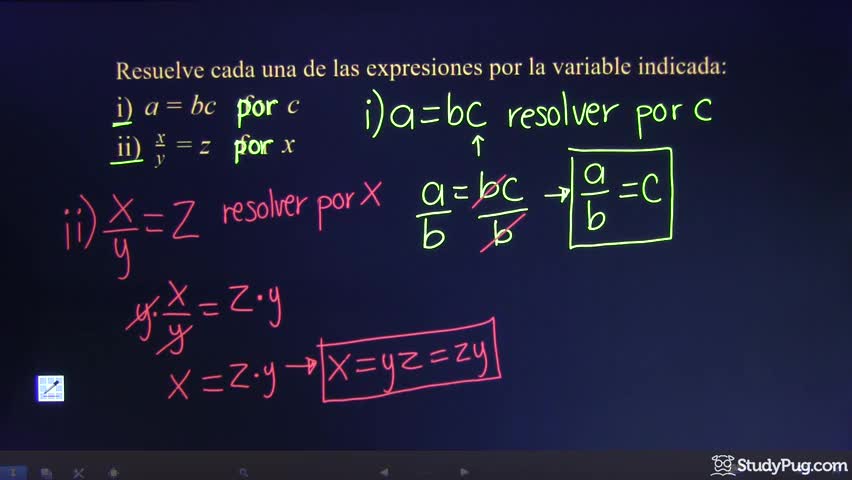 Resuelve cada una de las expresiones por la variable indicada:
i) a = bc por c
ii) x/y = z por x
i) a = bc resolver por c
a/b = bc/b → a/b = c
ii) x/y = z resolver por x
y · x/y = z · y
x = z · y → x = yz = zy
StudyPug.com